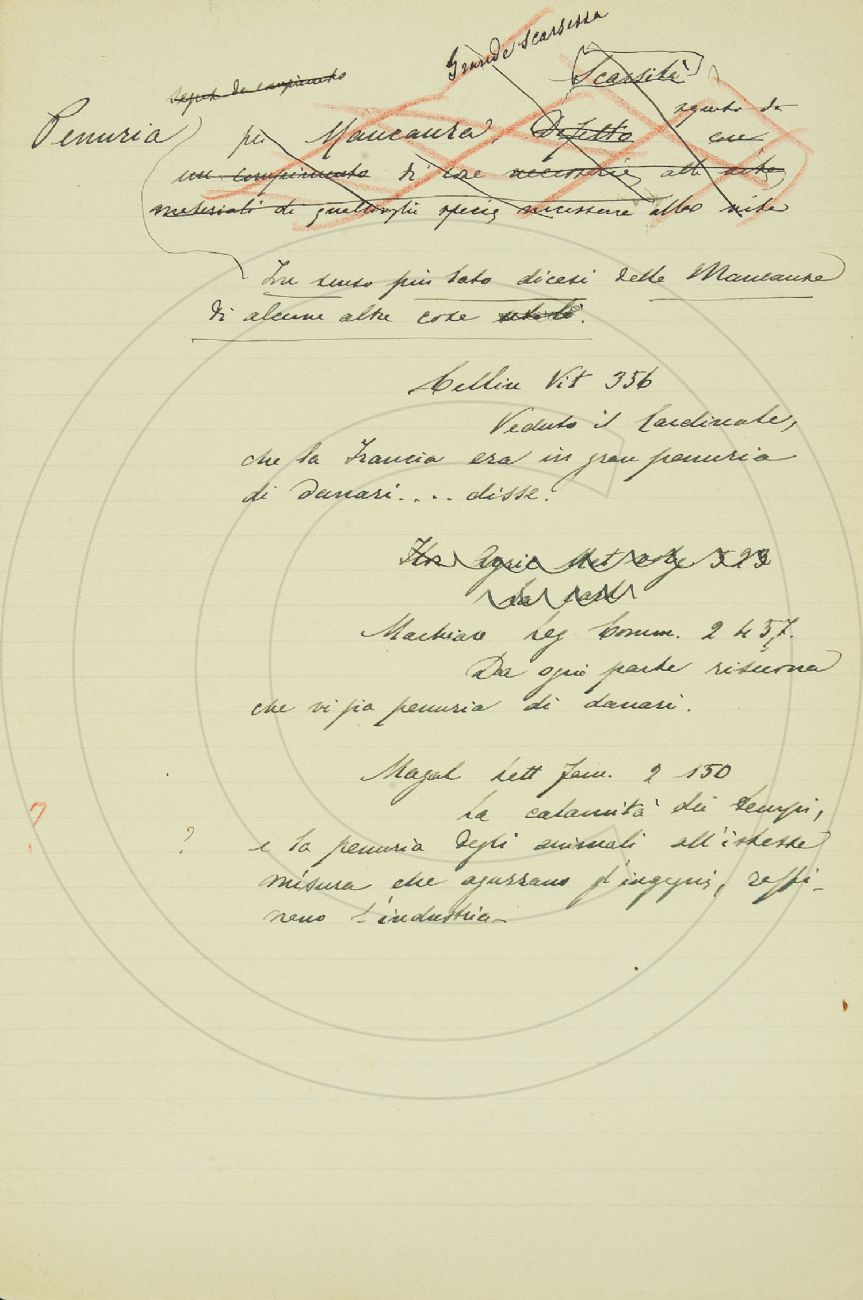 Grande scarsezza
Scarsità
seguito da compimento
seguito da
Penuria per Mancanza, Difetto cose
un compimento di cose necessarie, alla vita,
materiali di qualunque specie necessarie alla vita
In senso più lato dicesi delle Mancanze
di alcune altre cose
Cellin Vit 356
Veduto il Cardinale,
che la Francia era in gran penuria
di danari.... disse.
323
Machiav Leg Comm. 2 457.
Da ogni parte risuona
che vi sia penuria di danari.
Magal Lett fam. 2 150
La calamità dei tempi,
? ? e la penuria degli animali all'istessa
misura che aguzzano gl'ingegni, raffi-
nano l'industria